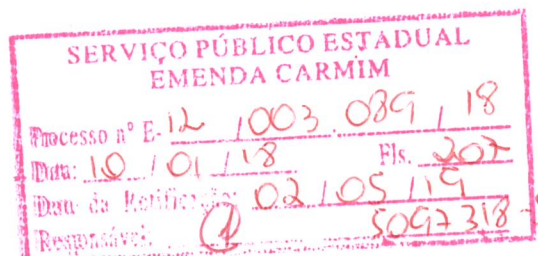 SERVIÇO PÚBLICO ESTADUAL
EMENDA CARMIM
Processo nº E- 12 / 003.089 / 18
Data: 10 / 01 / 18 Fls. 207
Data da Retificação: 02 / 05 / 19
Responsável: 5097318-